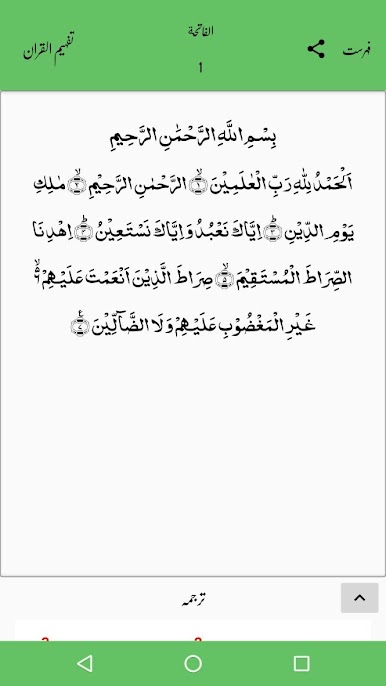 الفاتحة
فہرست
تفہیم القران
1
بِسْمِ اللّٰهِ الرَّحْمٰنِ الرَّحِيْمِ
اَلْحَمْدُ لِلّٰهِ رَبِّ الْعٰلَمِيْنَ ۙ‏﴿۱﴾ الرَّحْمٰنِ الرَّحِيْمِ ۙ‏﴿۲﴾ مٰلِكِ
يَوْمِ الدِّيْنِ ؕ‏﴿۳﴾ اِيَّاكَ نَعْبُدُ وَاِيَّاكَ نَسْتَعِيْنُ ؕ‏﴿۴﴾ اِهْدِنَا
الصِّرَاطَ الْمُسْتَقِيْمَ ۙ‏﴿۵﴾ صِرَاطَ الَّذِيْنَ اَنْعَمْتَ عَلَيْهِمْ ۙ۬
غَيْرِ الْمَغْضُوْبِ عَلَيْهِمْ وَلَا الضَّآلِّيْنَ‏﴿۷﴾
ترجمہ